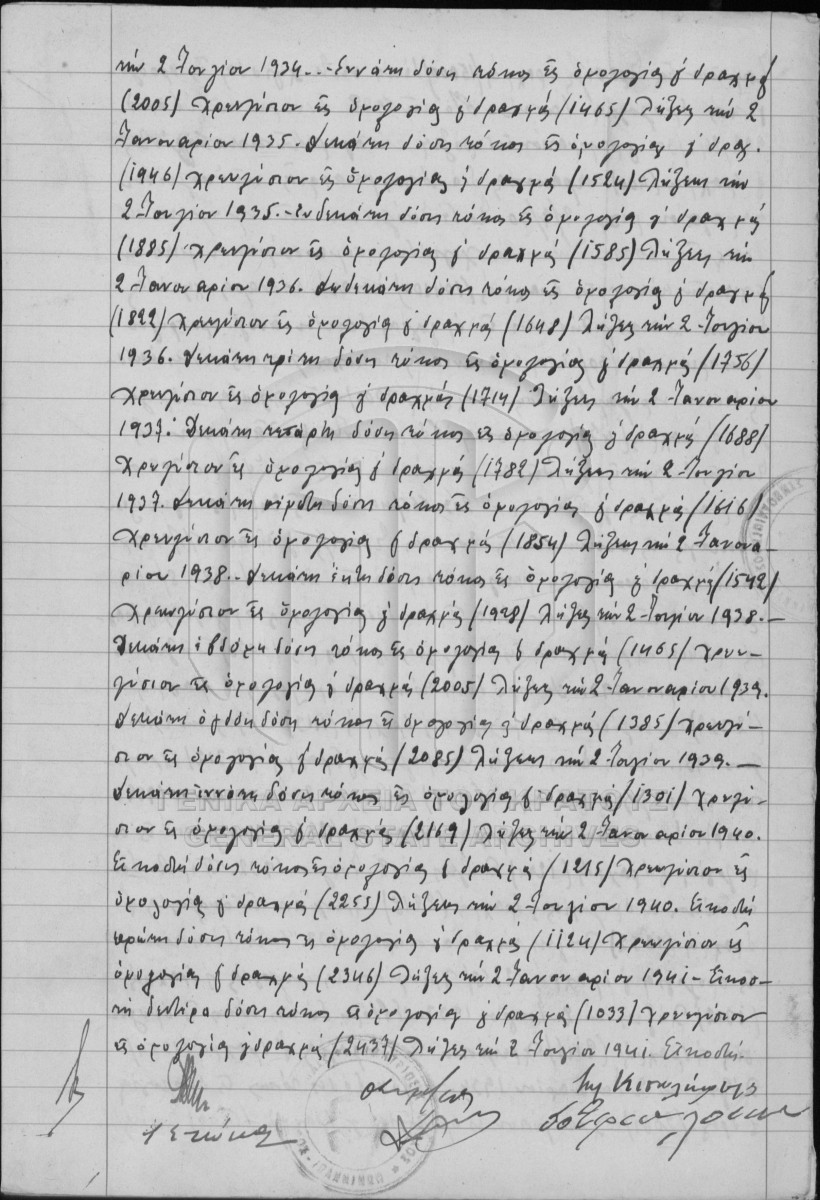 τήν 2 Ἰουλίου 1934.- Ἐννάτη δόσις τόκος εἰς ὁμολογίας ἤ δραχμάς
(2005) χρεωλύσιον εἰς ὁμολογίας ἤ δραχμάς (1465) λήξεως τήν 2
Ἰανουαρίου 1935. Δεκάτη δόσις τόκος εἰς ὁμολογίας ἤ δραχ.
(1946) χρεωλύσιον εἰς ὁμολογίας ἤ δραχμάς (1524) λήξεως τήν
2 Ἰουλίου 1935.- Ἑνδεκάτη δόσις τόκος εἰς ὁμολογίας ἤ δραχμάς
(1885) χρεωλύσιον εἰς ὁμολογίας ἤ δραχμάς (1585) λήξεως τήν
2 Ἰανουαρίου 1936. Δωδεκάτη δόσις τόκος εἰς ὁμολογίας ἤ δραχμάς
(1822) χρεωλύσιον εἰς ὁμολογίας ἤ δραχμάς (1648) λήξεως τήν 2 Ἰουλίου
1936. Δεκάτη τρίτη δόσις τόκος εἰς ὁμολογίας ἤ δραχμάς (1756)
χρεωλύσιον εἰς ὁμολογίας ἤ δραχμάς (1714) λήξεως τήν 2 Ἰανουαρίου
1937. Δεκάτη τετάρτη δόσις τόκος εἰς ὁμολογίας ἤ δραχμάς (1688)
χρεωλύσιον εἰς ὁμολογίας ἤ δραχμάς (1782) λήξεως τήν 2 Ἰουλίου
1937. Δεκάτη πέμπτη δόσις τόκος εἰς ὁμολογίας ἤ δραχμάς (1616)
χρεωλύσιον εἰς ὁμολογίας ἤ δραχμάς (1854) λήξεως τήν 2 Ἰανουα-
ρίου 1938.- Δεκάτη ἕκτη δόσις τόκος εἰς ὁμολογίας ἤ δραχμάς (1542)
χρεωλύσιον εἰς ὁμολογίας ἤ δραχμάς (1928) λήξεως τήν 2 Ἰουλίου 1938.-
Δεκάτη ἑβδόμη δόσις τόκος εἰς ὁμολογίας ἤ δραχμάς (1465) χρεω-
λύσιον εἰς ὁμολογίας ἤ δραχμάς (2005) λήξεως τήν 2 Ἰανουαρίου 1939.
Δεκάτη ὀγδόη δόσις τόκος εἰς ὁμολογίας ἤ δραχμάς (1385) χρεωλύ-
σιον εἰς ὁμολογίας ἤ δραχμάς (2085) λήξεως τήν 2 Ἰουλίου 1939.-
Δεκάτη ἐννάτη δόσις τόκος εἰς ὁμολογίας ἤ δραχμάς (1301) χρεωλύ-
σιον εἰς ὁμολογίας ἤ δραχμάς (2169) λήξεως τήν 2 Ἰανουαρίου 1940.
Εἰκοστή δόσις τόκος εἰς ὁμολογίας ἤ δραχμάς (1215) χρεωλύσιον εἰς
ὁμολογίας ἤ δραχμάς (2255) λήξεως τήν 2 Ἰουλίου 1940. Εἰκοστή
πρώτη δόσις τόκος εἰς ὁμολογίας ἤ δραχμάς (1124) χρεωλύσιον εἰς
ὁμολογίας ἤ δραχμάς (2346) λήξεως τήν 2 Ἰανουαρίου 1941 - Εἰκοσ-
τή δευτέρα δόσις τόκος εἰς ὁμολογίας ἤ δραχμάς (1033) χρεωλύσιον
εἰς ὁμολογίας ἤ δραχμάς (2437) λήξεως τήν 2 Ἰουλίου 1941. Εἰκοστή
ΓΕΝΙΚΑ ΑΡΧΕΙΑ ΤΟΥ ΚΡΑΤΟΥΣ
GENERAL STATE ARCHIVES